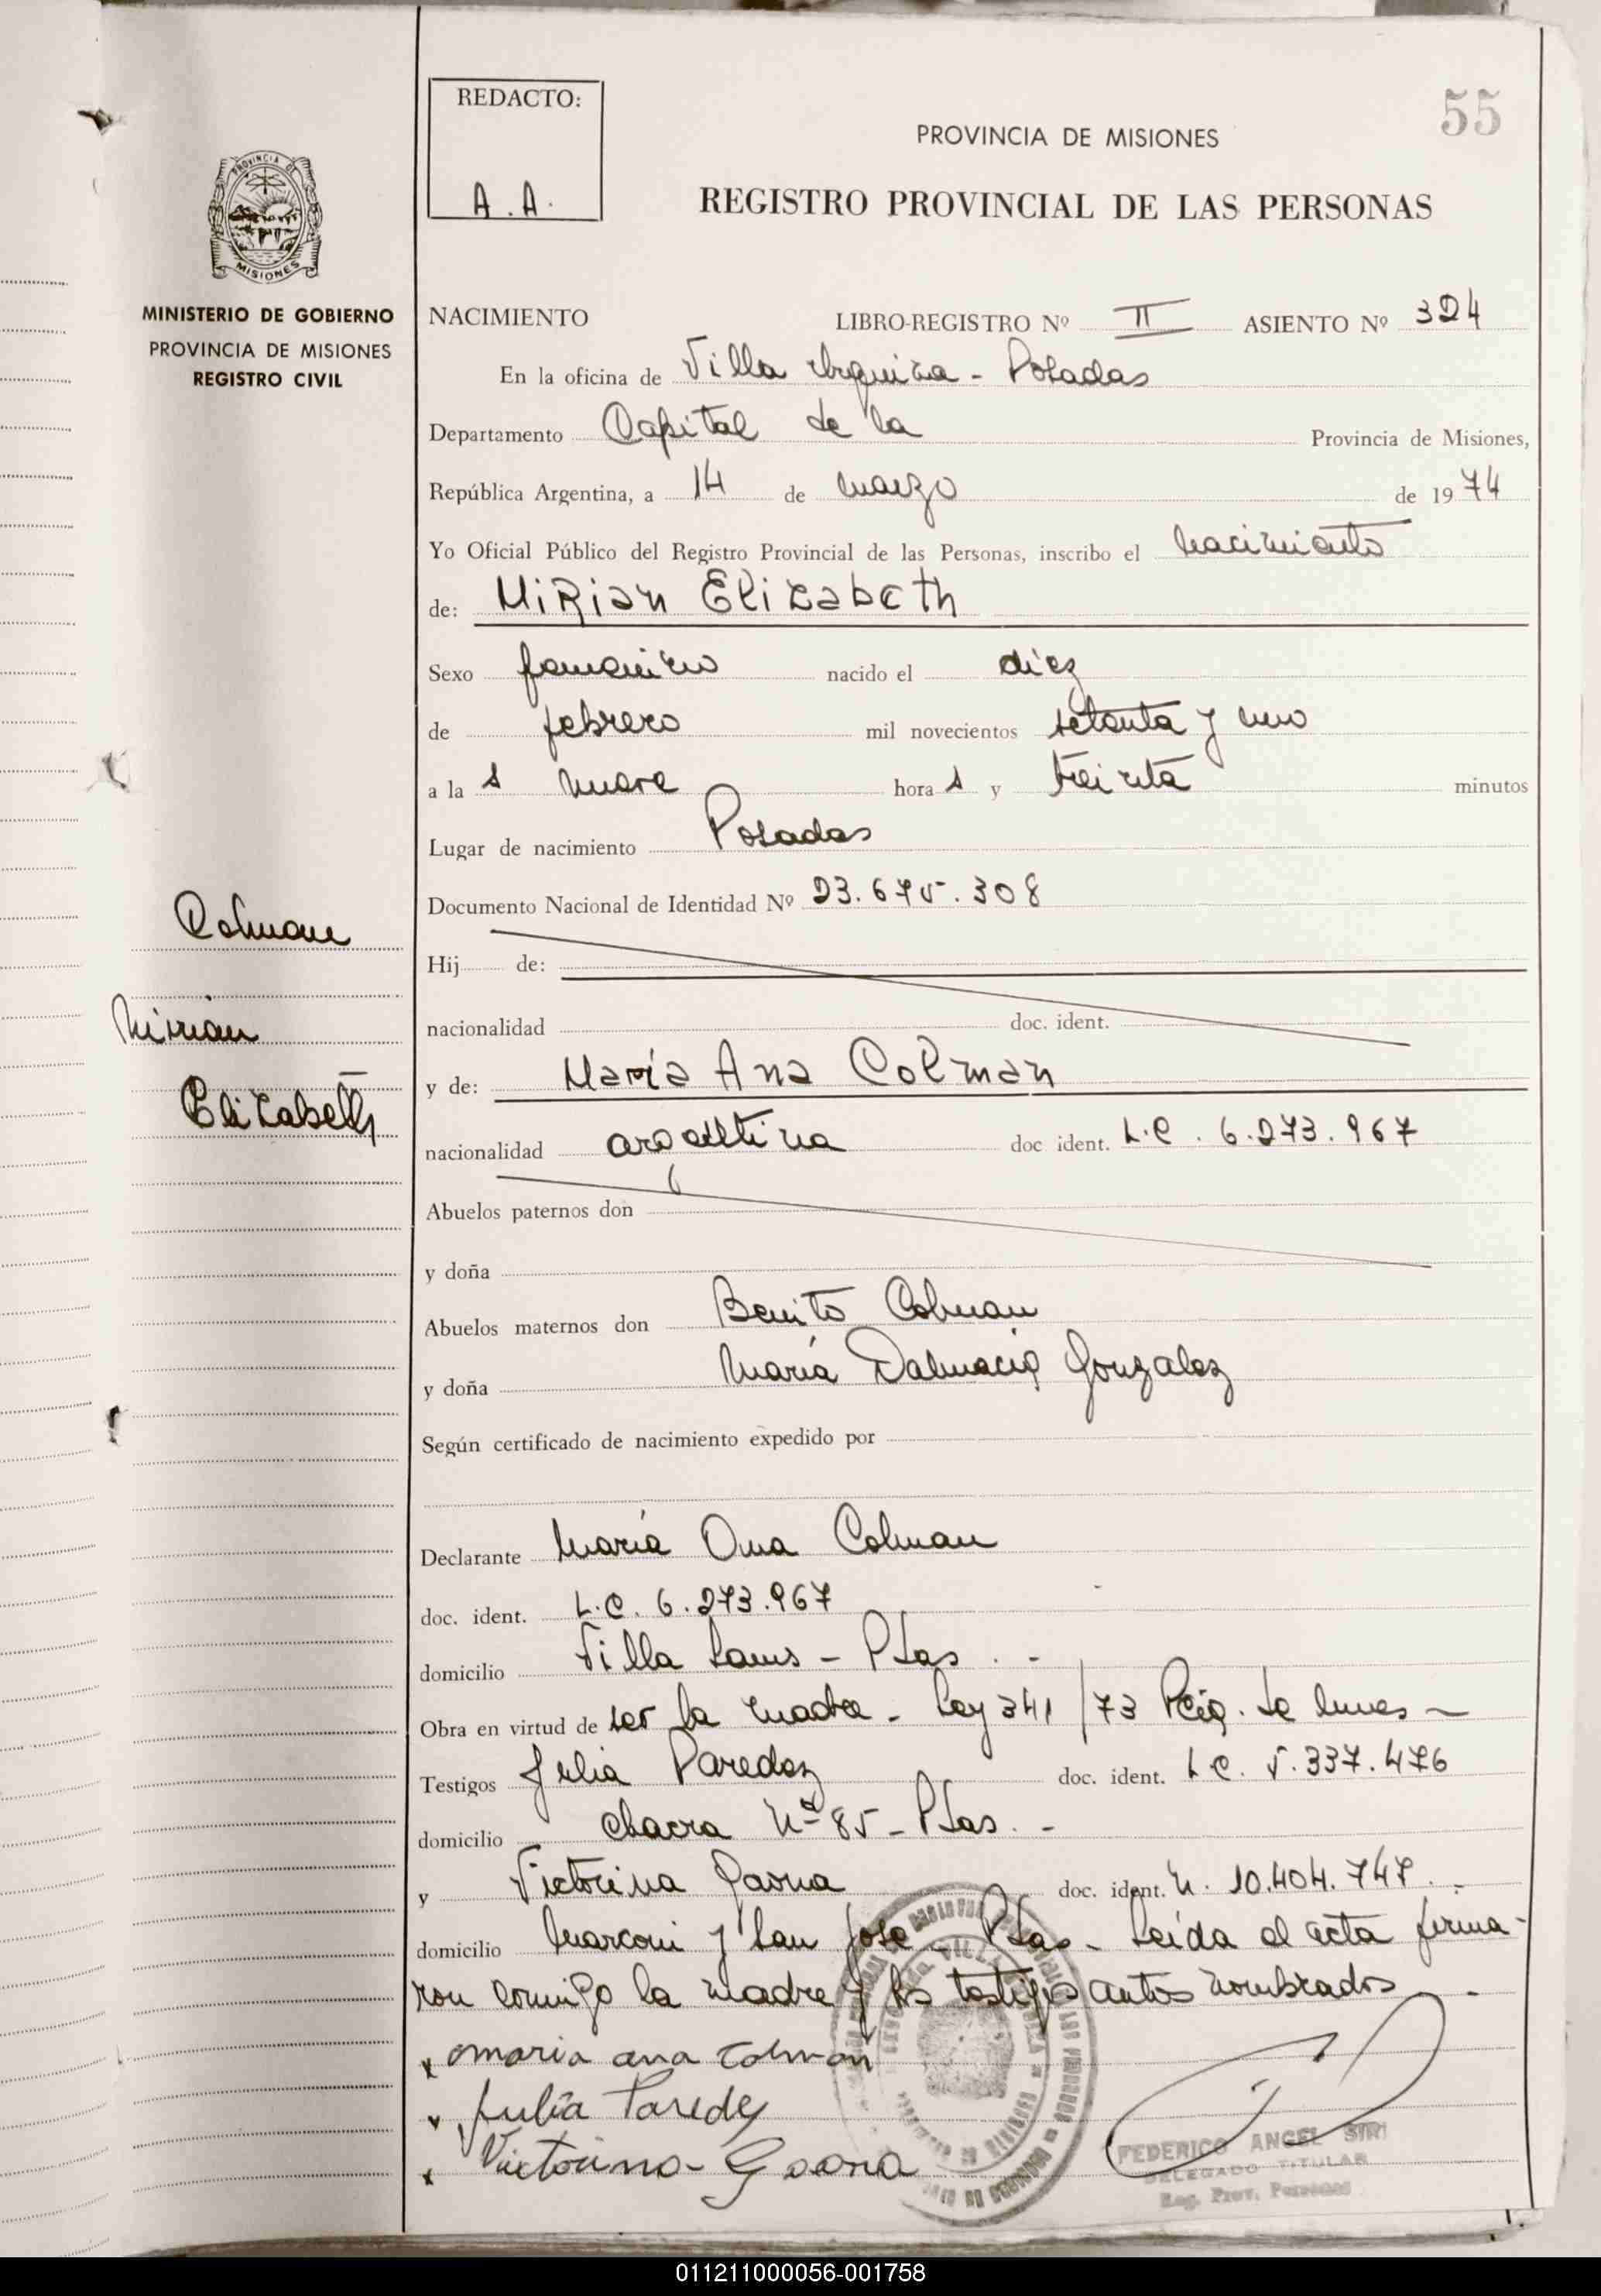 55
REDACTO:
A. A.
PROVINCIA DE MISIONES
REGISTRO PROVINCIAL DE LAS PERSONAS
PROVINCIA DE
MISIONES
MINISTERIO DE GOBIERNO
PROVINCIA DE MISIONES
REGISTRO CIVIL
NACIMIENTO LIBRO-REGISTRO Nº II ASIENTO Nº 324
En la oficina de Villa Urquiza - Posadas
Departamento Capital de la Provincia de Misiones,
República Argentina, a 14 de marzo de 1974
Yo Oficial Público del Registro Provincial de las Personas, inscribo el nacimiento
de: Mirian Elizabeth
Sexo femenino nacido el diez
de febrero mil novecientos setenta y uno
a la s nueve hora s y treinta minutos
Lugar de nacimiento Posadas
Documento Nacional de Identidad Nº 23.675.308
Hij de:
nacionalidad doc. ident.
y de: María Ana Colman
nacionalidad argentina doc ident. L.C. 6.273.967
Abuelos paternos don
y doña
Abuelos maternos don Benito Colman
y doña María Dalmacia Gonzalez
Según certificado de nacimiento expedido por
Declarante María Ana Colman
doc. ident. L.C. 6.273.967
domicilio Villa - Pdas. -
Obra en virtud de ser la madre - Ley 341/73
Testigos Julia Paredez doc. ident. L.C. 5.337.476
domicilio chacra Nº 85 - Pdas. -
y Victorina Gaona doc. ident. N. 10.404.747. -
domicilio Marconi y San José - Pdas - Leída el acta firma-
ron conmigo la madre y los testigos antes nombrados -
x maria ana Colman
x Julia Paredez
x Victorina Gaona
FEDERICO ANGEL SIRI
DELEGADO TITULAR
Reg. Prov. Personas
Colman
Mirian
Elizabeth
011211000056-001758